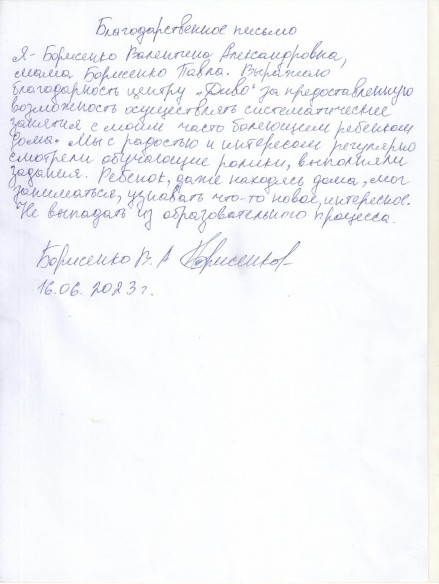 Благодарственное письмо
Я - Борисенко Валентина Александровна,
мама Борисенко Павла. Выражаю
благодарность центру „Диво" за предоставленную
возможность осуществлять систематические
занятия с моим часто болеющим ребёнком
дома. Мы с радостью и интересом регулярно
смотрели обучающие ролики, выполняли
задания. Ребёнок, даже находясь дома, мог
заниматься, узнавать что-то новое, интересное.
Не выпадать из образовательного процесса.
Борисенко В. А Борисенко
16.06. 2023г.